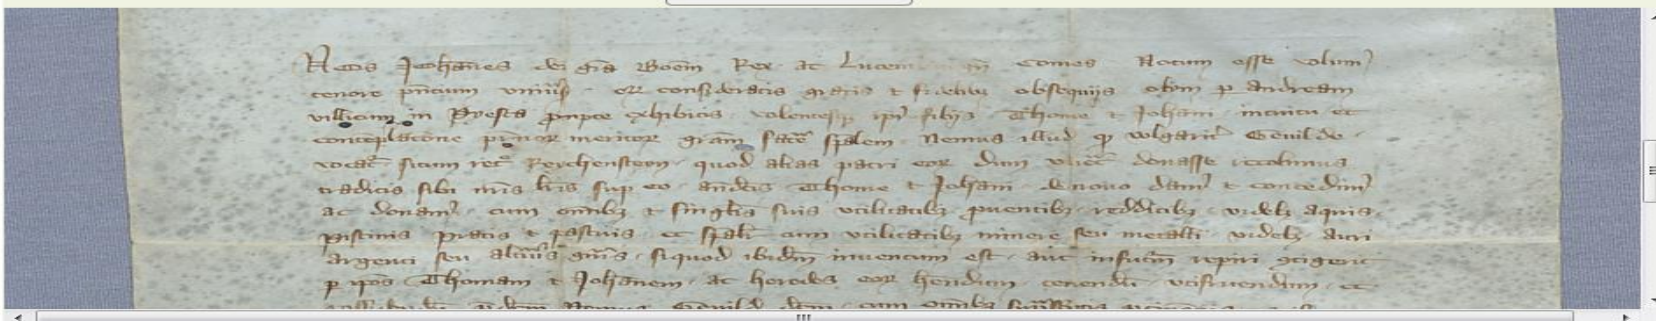 Nos Johañes dei gr̄a Boem̄ Rex ac Lucem comes Notum esse volum9
tenore pñcium vniuīs ꝙ consideratis gratis ⁊ fidelibꝫ obsequijs olym ꝑ Andream
villicum in exhibitis volentes ipī filijs Thome ⁊ Johañi intuitu et
conteplac̄one meritoꝝ gr̄am fac̄e sp̄alem Nemus illud ꝙ wlgarit̄
vocat̄ situm Reychensteyn quod alias patri eoꝝ dum donasse recolimus
traditis sibi nr̄is lr̄is sup eo Thome ⁊ Johañi denouo dam9 ⁊ concedim9
ac donam9 cum om̄ibꝫ ⁊ singl̄is suis vtilitatibꝫ ꝓuentibꝫ redditibꝫ videlꝫ aquis
pistinis pratis ⁊ pascuis et sp̄alr̄ cum vtilitatibꝫ minere seu metalli videlꝫ auri
argenti seu alt̄ius siquod ibid̄m inuentum est aut infut̄m repiri ꝯtigerit
ꝑ ip̄os Thomam ⁊ Joh̄anem ac heredes eoꝝ h̄endum tenendū vtifruendum et